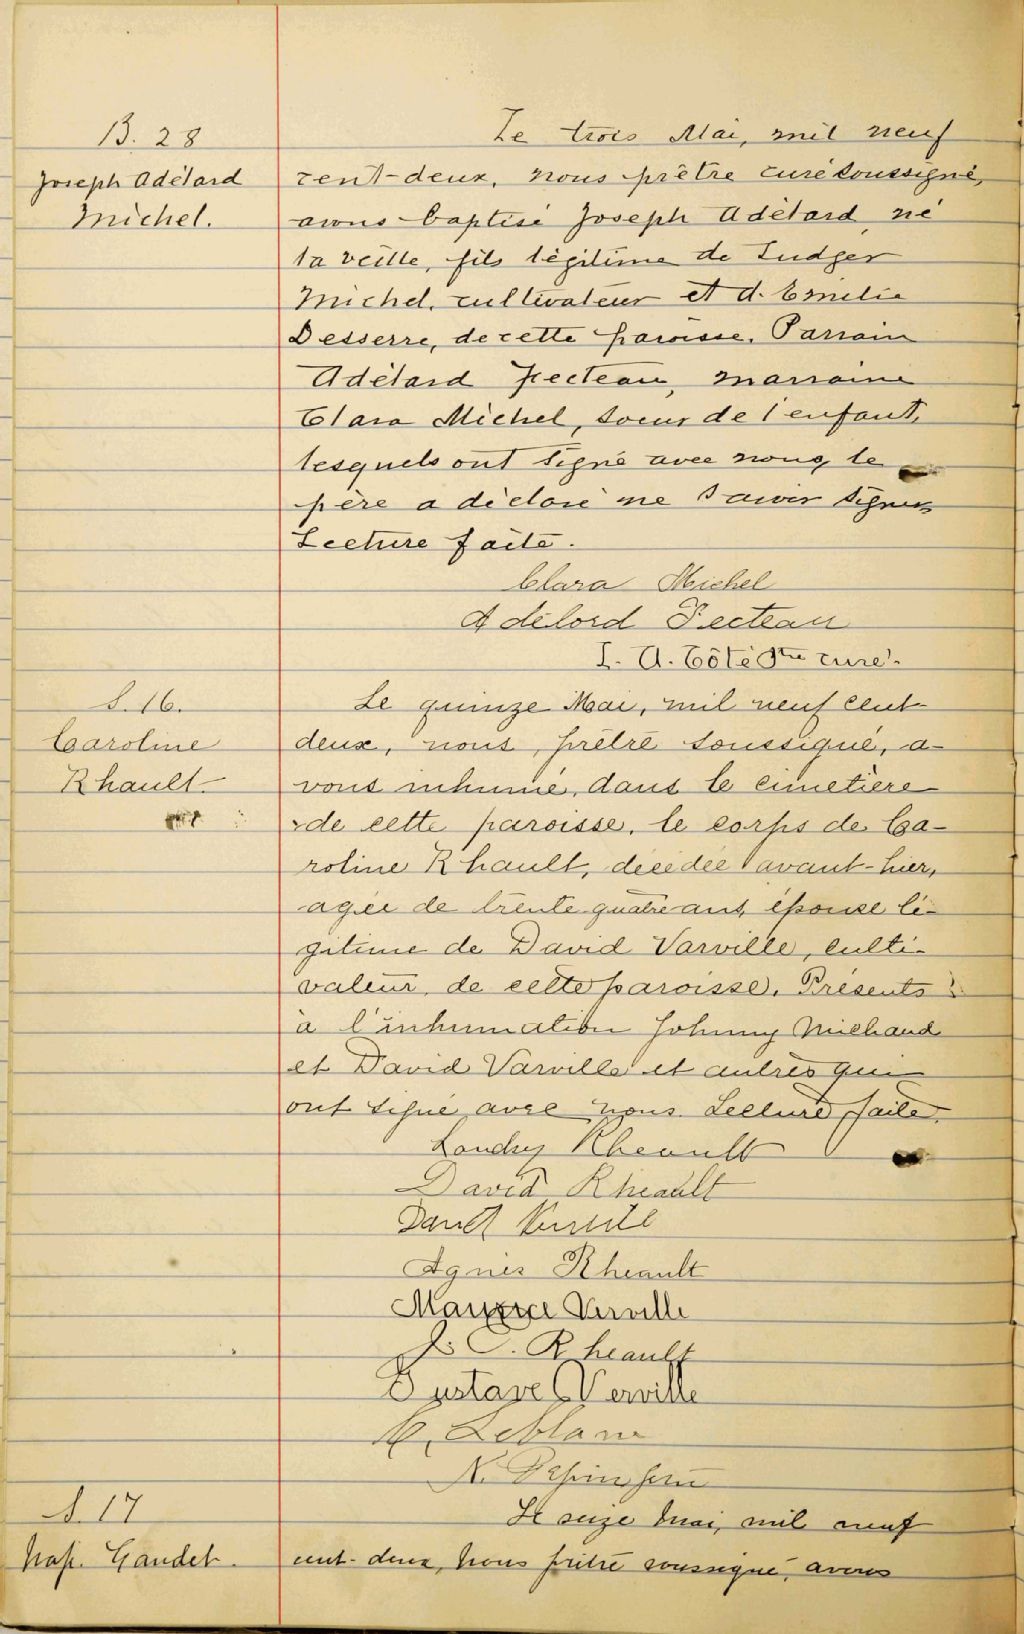 B. 28
Joseph Adélard
Michel.
Le trois Mai, mil neuf
cent-deux, nous prêtre curé soussigné,
avons baptisé Joseph Adélard, né
la veille, fils légitime de Ludger
Michel, cultivateur et d. Emélie
Desserre, de cette paroisse. Parrain
Adélard Fecteau, marraine
Clara Michel, soeur de l'enfant,
lesquels ont signé avec nous, le
père a déclaré ne savoir signer
Lecture faite.
Clara Michel
Adélord Fecteau
I. A. Côté Ptre curé.
S. 16.
Caroline
Rhault.
Le quinze Mai, mil neuf cent-
deux, nous, prêtre soussigné, a-
vons inhumé, dans le cimetière
de cette paroisse, le corps de Ca-
roline Rhault, décédée avant-hier,
agée de trente-quatre ans, épouse lé-
gitime de David Varville, culti-
vateur, de cette paroisse. Présents
à l'inhumation Johnny Michaud
et David Varville et autres qui
ont signé avec nous. Lecture faite.
Landry Rheault
David Rheault
David Verville
Agnès Rheault
Maurice Verville
J. C. Rheault
Gustave Verville
Leblanc
N. Pépin
S. 17
Nap. Gaudet.
Le seize Mai, mil neuf
cent-deux, nous prêtre soussigné, avons